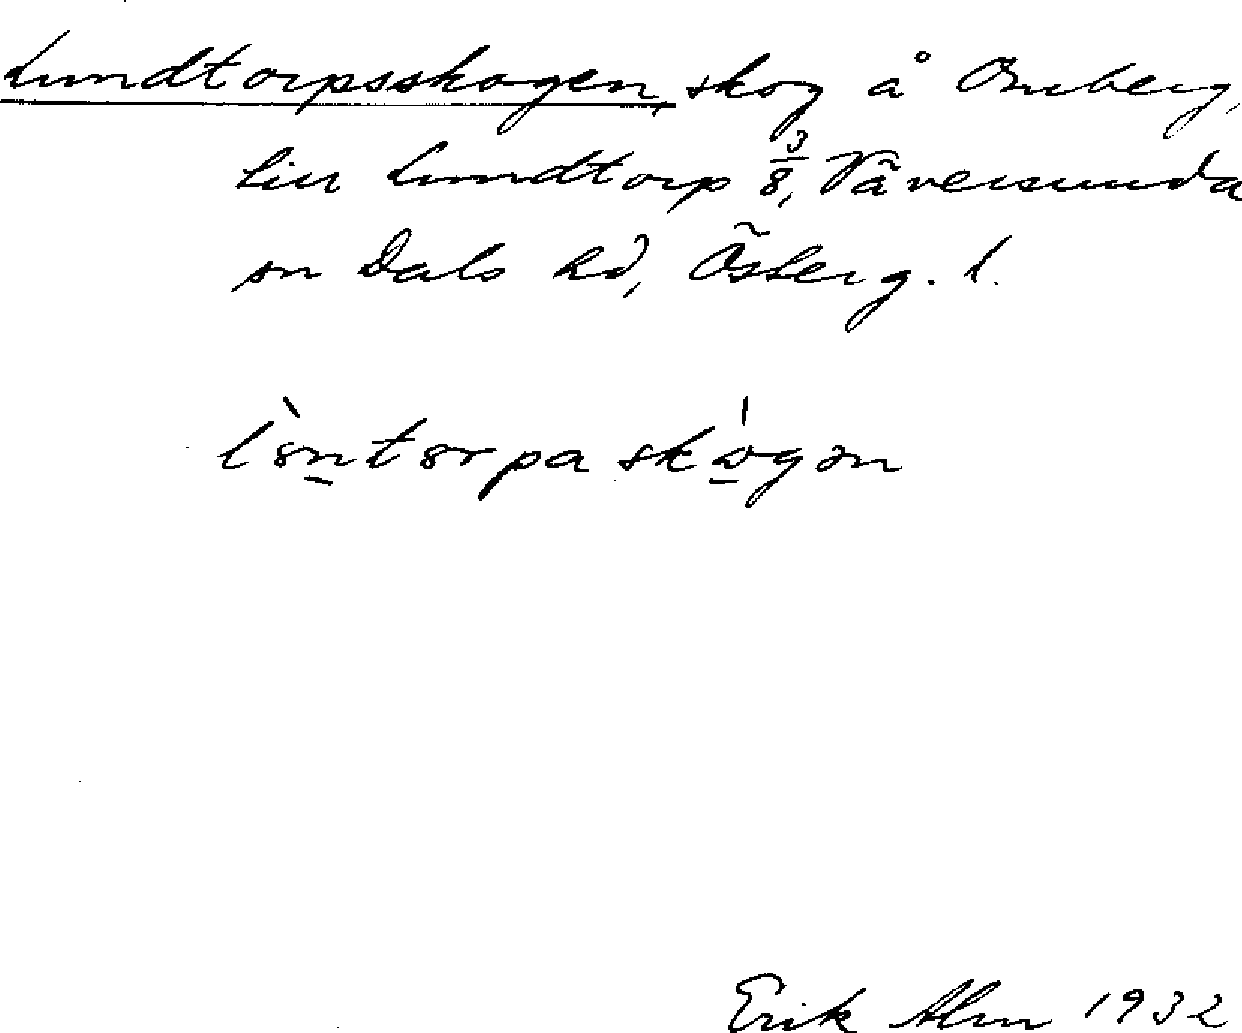 Lundtorpsskogen, skog å Omberg,
till Lundtorp 3/8, Väversunda
sn Dals hd, Österg. l.
lo̔ntorpa skogən
Erik Alm 1932